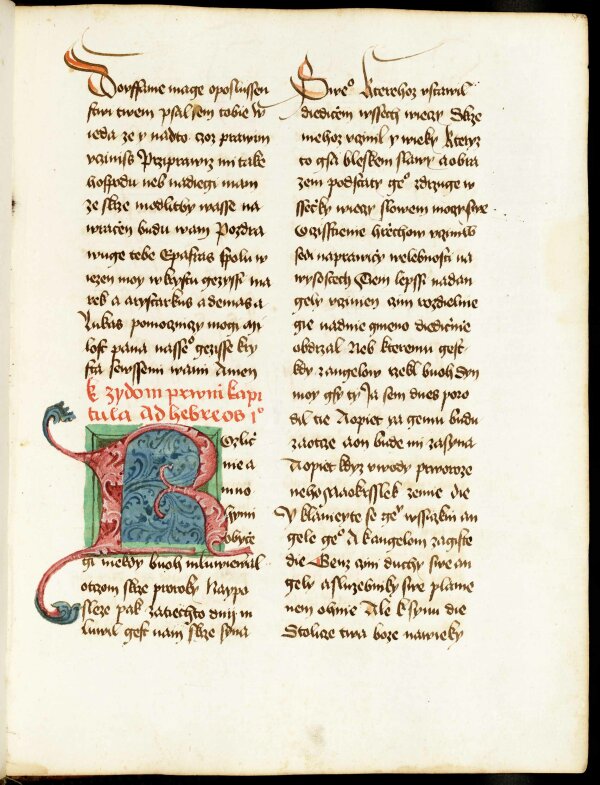 Dorffanie mage oposlussen
stwi twem psal sem tobie w
ieda ze y nadto czoz prawim
vcziniss Przíprawiz mi take
hospodu neb nadiegi mam
ze skrze modlitby wasse na
wraczen budu wam Pozdra
wuge tebe Epafras spolu w
iezen moy w krystu gezissi ma
rek a aristarkus a demas a
Lukas pomocznizy mogi mi
lost pana nasseº gezisse kry
sta sewssemi wami Amen
k zydom prwni kapi
tula Ad hebreos 1º
Rozlicz
nie a
mno
hymi
obycze
gi niekdy buoh mluwiewal
otczom skrze proroky Naypo
sleze pak zatiechto dnij m
luwil gest nam skrze syna
Sweº Kterehoz vstawil
diedicem wssech wieczy Skrze
niehoz vczinil y wieky Kteryz
to gsa bleskem slawy a obra
zem podstaty geº zdrzuge w
ssečky wieczy slowem moczy swe
Oczisstienie hrzechow vczině
sedi naprawiczy welebnosti na
wysostech Tiem lepssi nadan
gely vczinen czim rozdielne
gie nad nie gmeno diedicznie
obdrzal Neb kteremu gest
kdy zangelow rzekl buoh Syn
moy gsy ty Ja sem dnes poro
dil tie A opiet ya gemu budu
zaotcze a on bude mi zasyna
A opiet kdyz vwody prworoze
neho na okrsslek zemie die
Y klanieyte se geº wssiczkni an
gele geº A k angelom zagiste
die Genz czini duchy swe an
gely a sluzebniky swe plame
nem ohnie Ale k synu die
Stolicze twa boze nawieky